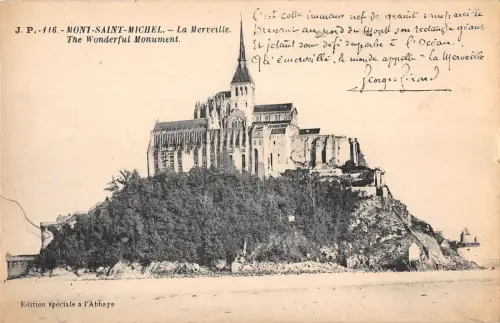 J. P. - 116. - MONT-SAINT-MICHEL. - La Merveille.
The Wonderful Monument.
C'est cette immense nef de granit sans pareille
Prenant au fond du Mont son rectangle géant
Et jetant son défi superbe à l'océan,
Qu'émerveillé, le monde appelle "La Merveille
Georges Girard
Edition spéciale a l'Abbaye